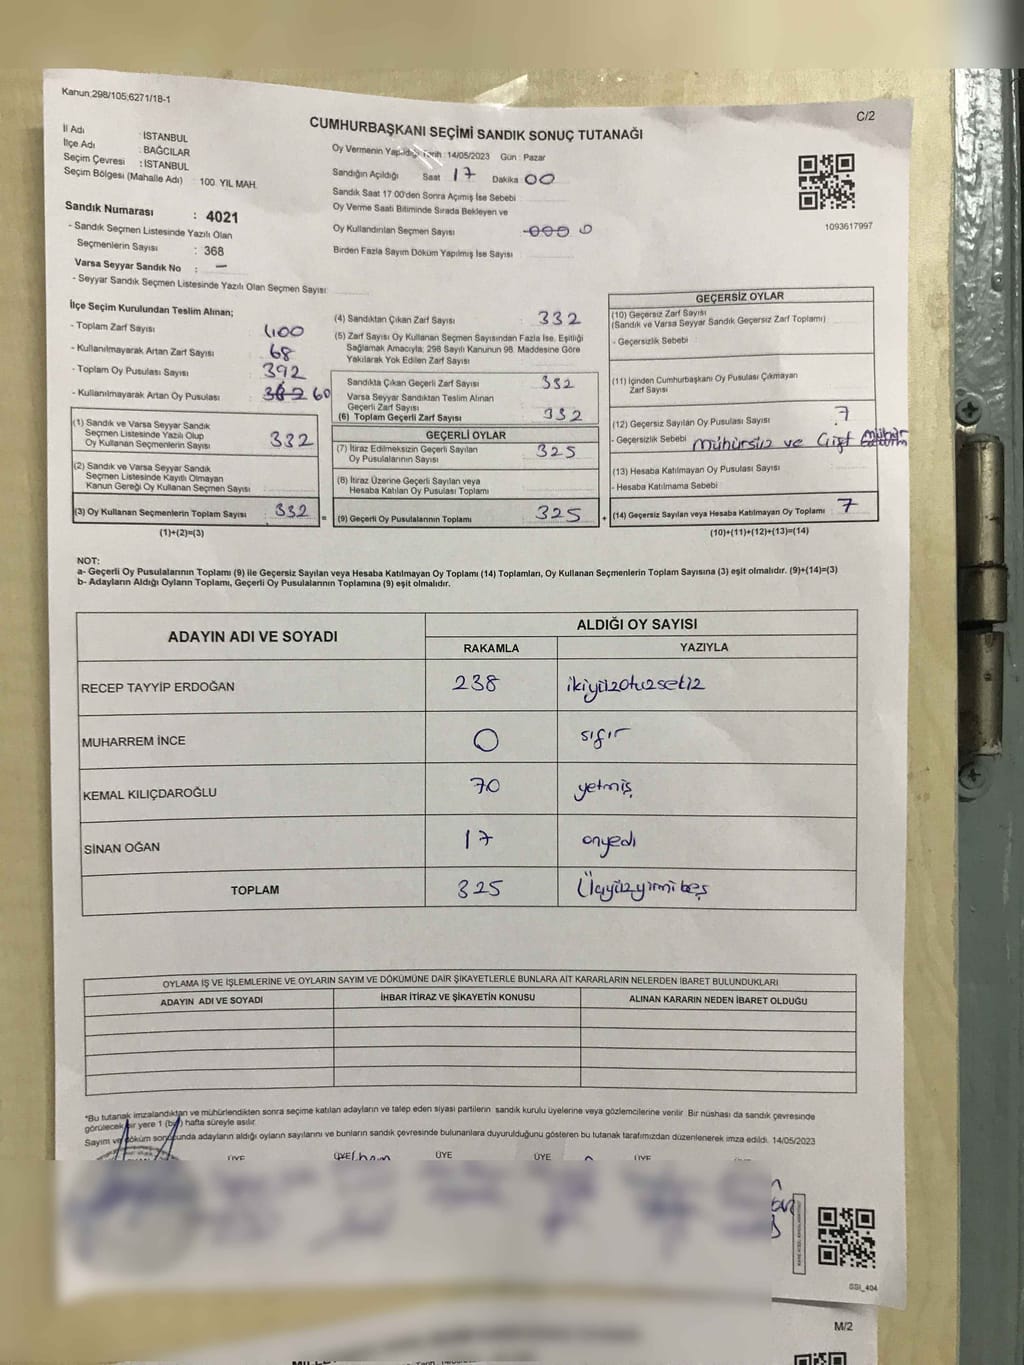 Kanun,298/105,6271/18-1
C/2
CUMHURBAŞKANI SEÇİMİ SANDIK SONUÇ TUTANAĞI
İl Adı : İSTANBUL
İlçe Adı : BAĞCILAR
Seçim Çevresi : İSTANBUL
Seçim Bölgesi (Mahalle Adı) : 100. YIL MAH.
Sandık Numarası : 4021
- Sandık Seçmen Listesinde Yazılı Olan
Seçmenlerin Sayısı : 368
Varsa Seyyar Sandık No : —
- Seyyar Sandık Seçmen Listesinde Yazılı Olan Seçmen Sayısı:
Oy Vermenin Yapıldığı Tarih : 14/05/2023 Gün : Pazar
Sandığın Açıldığı Saat 17 Dakika 00
Sandık Saat 17 00'den Sonra Açılmış İse Sebebi
Oy Verme Saati Bitiminde Sırada Bekleyen ve
Oy Kullandırılan Seçmen Sayısı 000 0
Birden Fazla Sayım Döküm Yapılmış İse Sayısı
1093617997
İlçe Seçim Kurulundan Teslim Alınan;
- Toplam Zarf Sayısı 400
- Kullanılmayarak Artan Zarf Sayısı 68
- Toplam Oy Pusulası Sayısı 392
- Kullanılmayarak Artan Oy Pusulası 60
(1) Sandık ve Varsa Seyyar Sandık
Seçmen Listesinde Yazılı Olup
Oy Kullanan Seçmenlerin Sayısı 332
(2) Sandık ve Varsa Seyyar Sandık
Seçmen Listesinde Kayıtlı Olmayan
Kanun Gereği Oy Kullanan Seçmen Sayısı
(3) Oy Kullanan Seçmenlerin Toplam Sayısı 332
(1)+(2)=(3)
(4) Sandıktan Çıkan Zarf Sayısı 332
(5) Zarf Sayısı Oy Kullanan Seçmen Sayısından Fazla İse, Eşitliği
Sağlamak Amacıyla; 298 Sayılı Kanunun 98. Maddesine Göre
Yakılarak Yok Edilen Zarf Sayısı
Sandıkta Çıkan Geçerli Zarf Sayısı 332
Varsa Seyyar Sandıktan Teslim Alınan
Geçerli Zarf Sayısı
(6) Toplam Geçerli Zarf Sayısı 332
GEÇERLİ OYLAR
(7) İtiraz Edilmeksizin Geçerli Sayılan
Oy Pusulalarının Sayısı 325
(8) İtiraz Üzerine Geçerli Sayılan veya
Hesaba Katılan Oy Pusulası Toplamı
= (9) Geçerli Oy Pusulalarının Toplamı 325
GEÇERSİZ OYLAR
(10) Geçersiz Zarf Sayısı
(Sandık ve Varsa Seyyar Sandık Geçersiz Zarf Toplamı)
- Geçersizlik Sebebi
(11) İçinden Cumhurbaşkanı Oy Pusulası Çıkmayan
Zarf Sayısı
(12) Geçersiz Sayılan Oy Pusulası Sayısı 7
- Geçersizlik Sebebi mühürsüz ve Çift mühür
(13) Hesaba Katılmayan Oy Pusulası Sayısı
- Hesaba Katılmama Sebebi
+ (14) Geçersiz Sayılan veya Hesaba Katılmayan Oy Toplamı 7
(10)+(11)+(12)+(13)=(14)
NOT:
a- Geçerli Oy Pusulalarının Toplamı (9) ile Geçersiz Sayılan veya Hesaba Katılmayan Oy Toplamı (14) Toplamları, Oy Kullanan Seçmenlerin Toplam Sayısına (3) eşit olmalıdır. (9)+(14)=(3)
b- Adayların Aldığı Oyların Toplamı, Geçerli Oy Pusulalarının Toplamına (9) eşit olmalıdır.
ADAYIN ADI VE SOYADI ALDIĞI OY SAYISI
RAKAMLA YAZIYLA
RECEP TAYYİP ERDOĞAN 238 ikiyüzotuzsekiz
MUHARREM İNCE 0 sıfır
KEMAL KILIÇDAROĞLU 70 yetmiş
SİNAN OĞAN 17 onyedi
TOPLAM 325 Üçyüzyirmibeş
OYLAMA İŞ VE İŞLEMLERİNE VE OYLARIN SAYIM VE DÖKÜMÜNE DAİR ŞİKAYETLERLE BUNLARA AİT KARARLARIN NELERDEN İBARET BULUNDUKLARI
ADAYIN ADI VE SOYADI İHBAR İTİRAZ VE ŞİKAYETİN KONUSU ALINAN KARARIN NEDEN İBARET OLDUĞU
*Bu tutanak imzalandıktan ve mühürlendikten sonra seçime katılan adayların ve talep eden siyasi partilerin sandık kurulu üyelerine veya gözlemcilerine verilir. Bir nüshası da sandık çevresinde
görülecek bir yere 1 (bir) hafta süreyle asılır.
Sayım ve döküm sonucunda adayların aldığı oyların sayılarını ve bunların sandık çevresinde bulunanlara duyurulduğunu gösteren bu tutanak tarafımızdan düzenlenerek imza edildi. 14/05/2023
ÜYE ÜYE ÜYE ÜYE ÜYE
SSİ_404
M/2